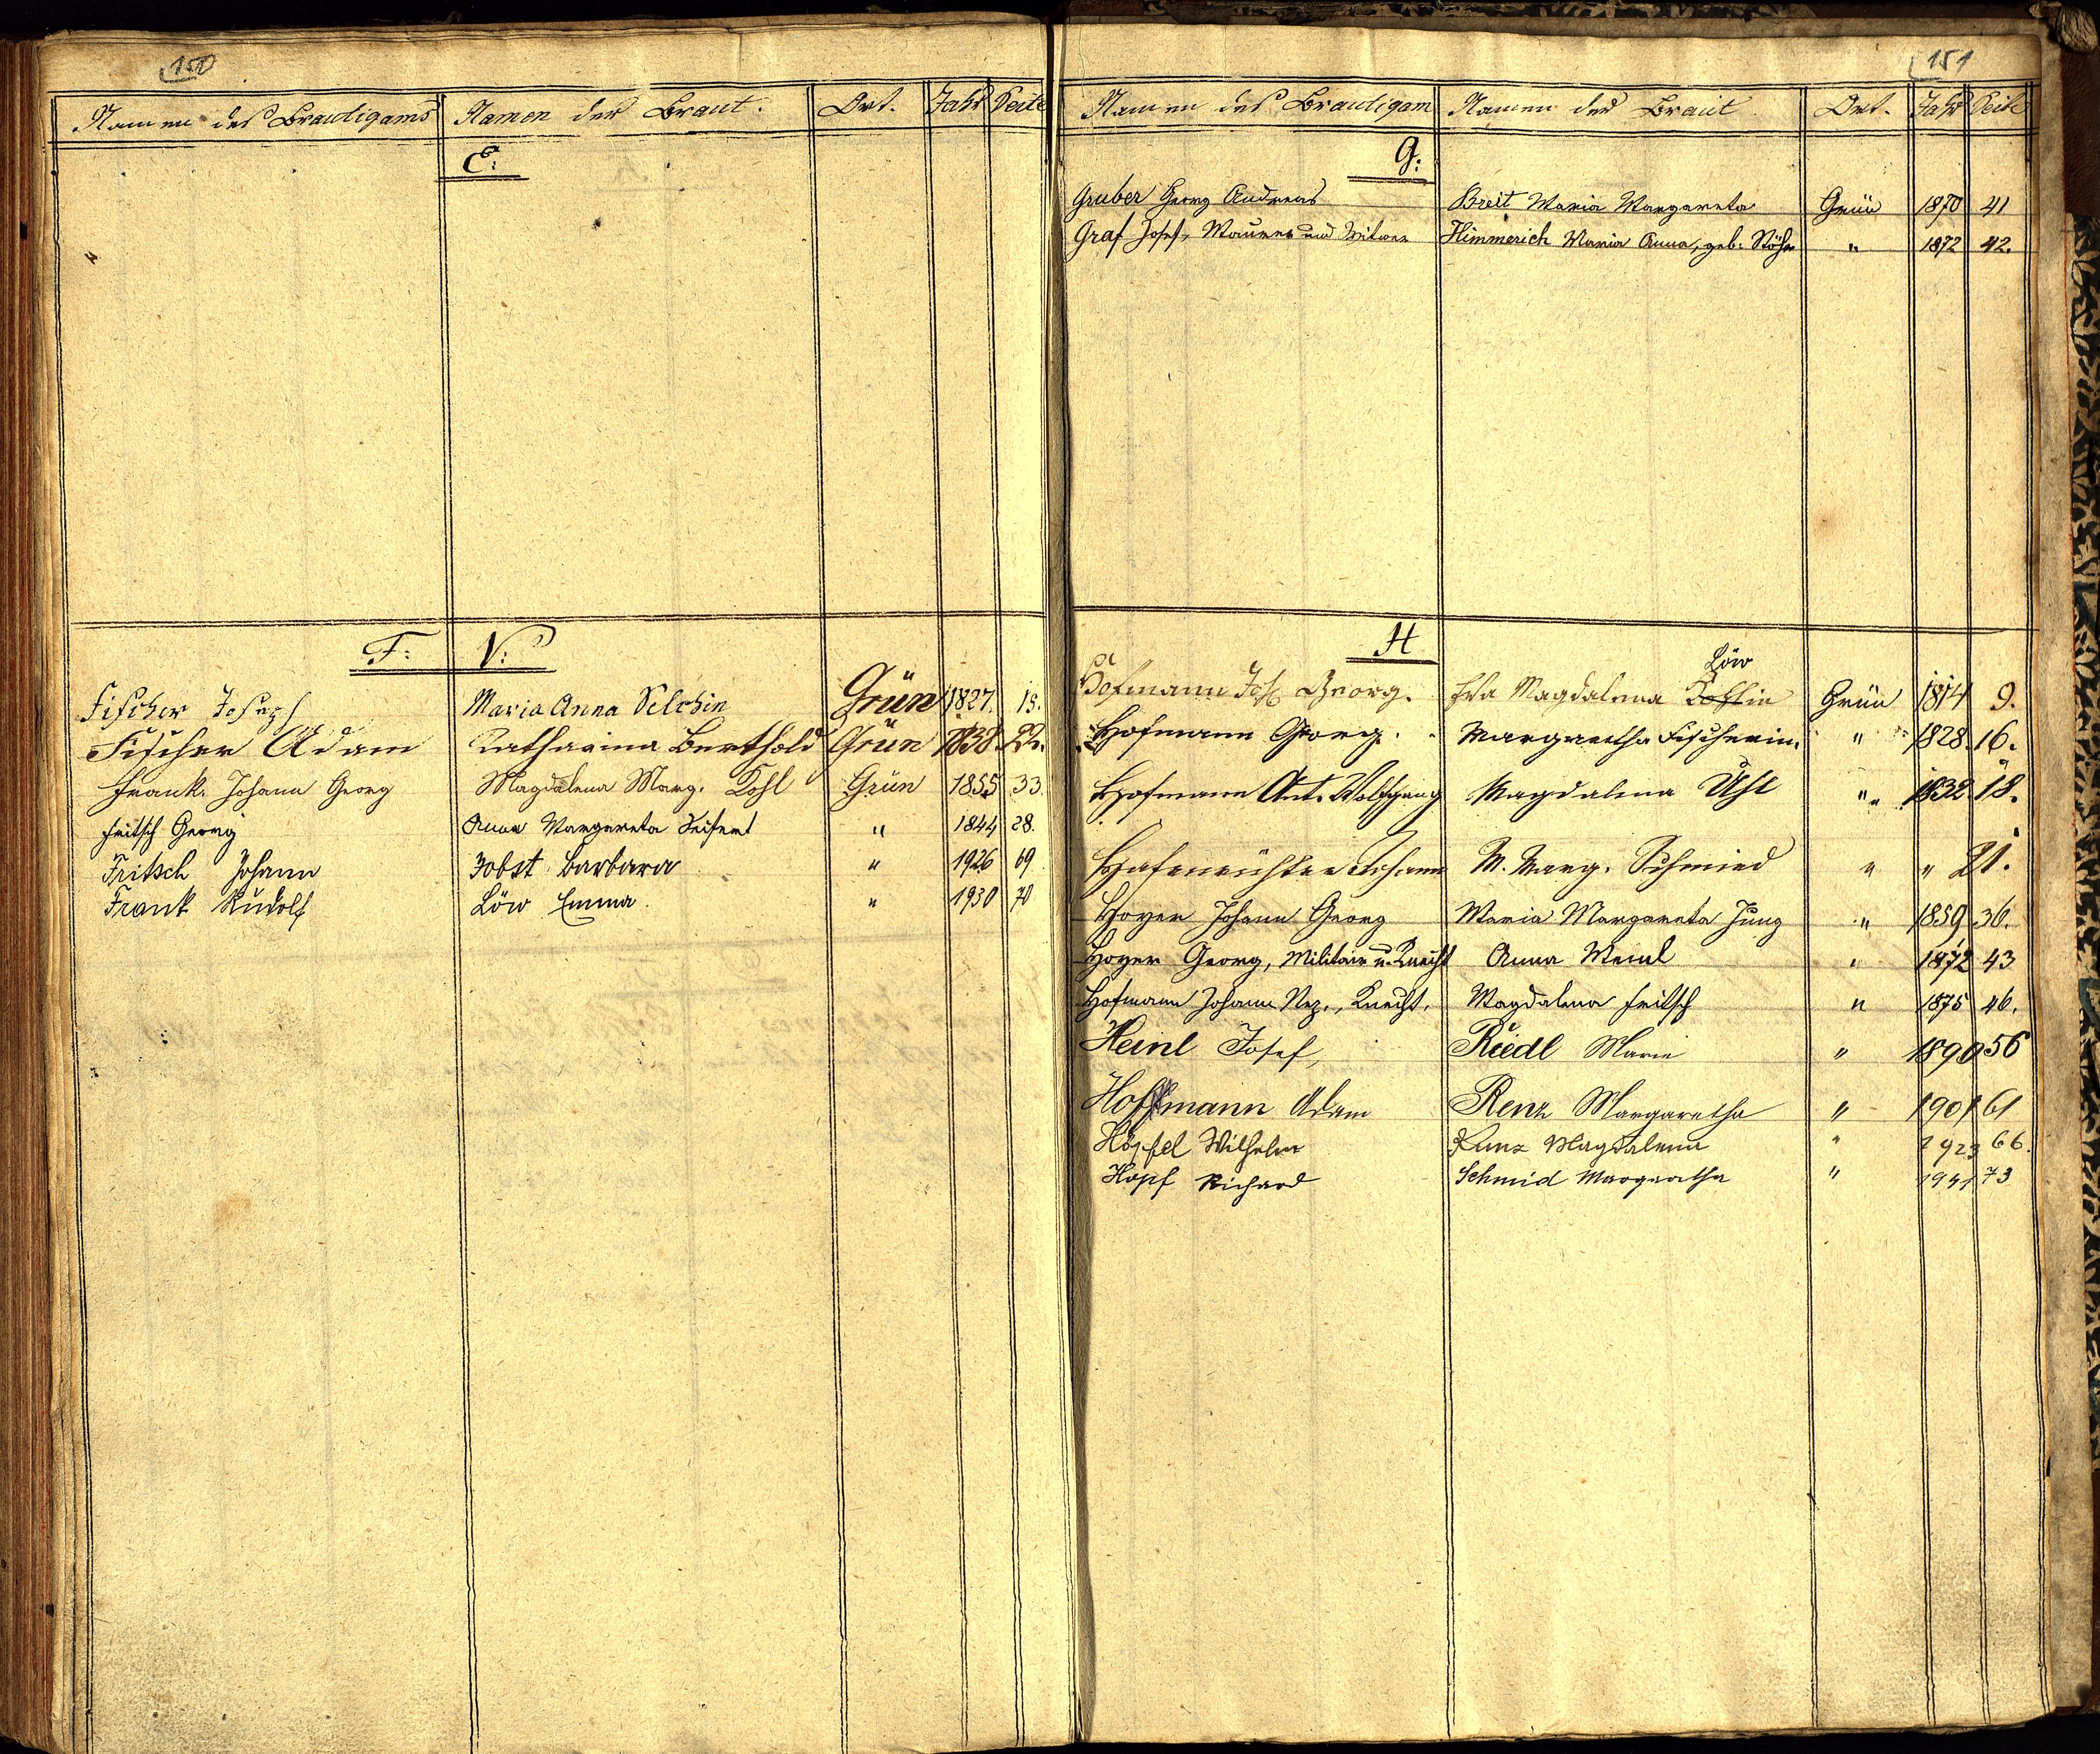 150
Namen des Bräutigams Namen der Braut. Ort. Jahr Seite
E:
F: V:
Fischer Joseph Maria Anna Selchin Grün 1827. 15.
Fischer Adam Katharina Berthold Grün 1838. 22.
Frank Johann Georg Magdalena Marg. Kohl Grün 1855 33.
Fritsch Georg Anna Margareta Seifert " 1844 28.
Fritsch Johann Jobst Barbara " 1926 69
Frank Rudolf Löw Emma " 1930 70
151
Namen des Bräutigam Namen der Braut Ort. Jahr Seite
G:
Gruber Georg Andreas Breit Maria Margareta Grün 1870 41
Graf Josef, Maurer und Witwer Himmerich Maria Anna, geb. Stöhr " 1872 42.
H
Löw
Hofmann Jos. Georg. Eva Magdalena Grün 1814 9.
Hofmann Georg. Margaretha Fischerin. " 1828. 16.
Hofmann Ant. Wolfgang Magdalena Uhl " 1832. 18.
Hafenrichter Johann M. Marg. Schmied " " 21.
Hoyer Johann Georg Maria Margareta Jung " 1859 36.
Hoyer Georg, Militair u. Knecht Anna Meinl " 1872 43
Hofmann Johann Nep., Knecht, Magdalena Fritsch " 1875 46.
Heinl Josef, Riedl Marie " 1890 56
Hoffmann Adam Renz Margaretha " 1901 61
Höpfel Wilhelm Kunz Magdalena " 1923 66.
Hopf Richard Schmid Margaretha " 1941 73